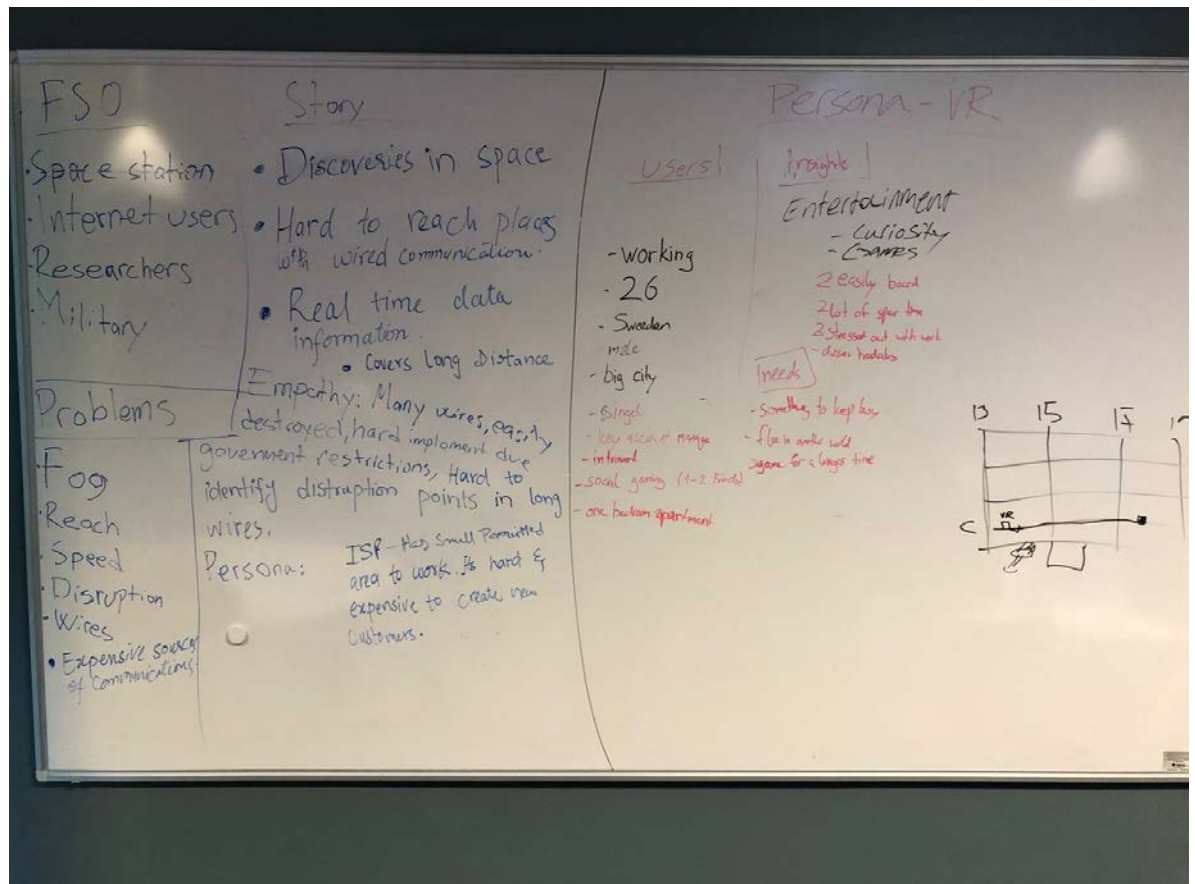 FSO
· Space station
· Internet users
· Researchers
· Military
Problems
· Fog
· Reach
· Speed
· Disruption
· Wires
• Expensive sources
of Communications
Story
• Discoveries in space
• Hard to reach places
with wired communication.
• Real time data
information.
• Covers Long Distance
Empathy: Many wires,
destroyed, hard implement due
government restrictions, Hard to
identify distruption points in long
wires.
Persona:
ISP - Has Small Permitted
area to work. Its hard &
expensive to create new
Customers.
Persona - VR
users!
- working
- 26
- Sweden
- male
- big city
- Singel
- key account manage
- introvert
- social gaming (1-2 friends)
- one bedroom apartment
insights!
Entertainment
- curiosity
- Games
easily board
lot of spar time
stressed out with work
needs
- something to keep busy
in another world
game for a longer time
13 15 17
C VR